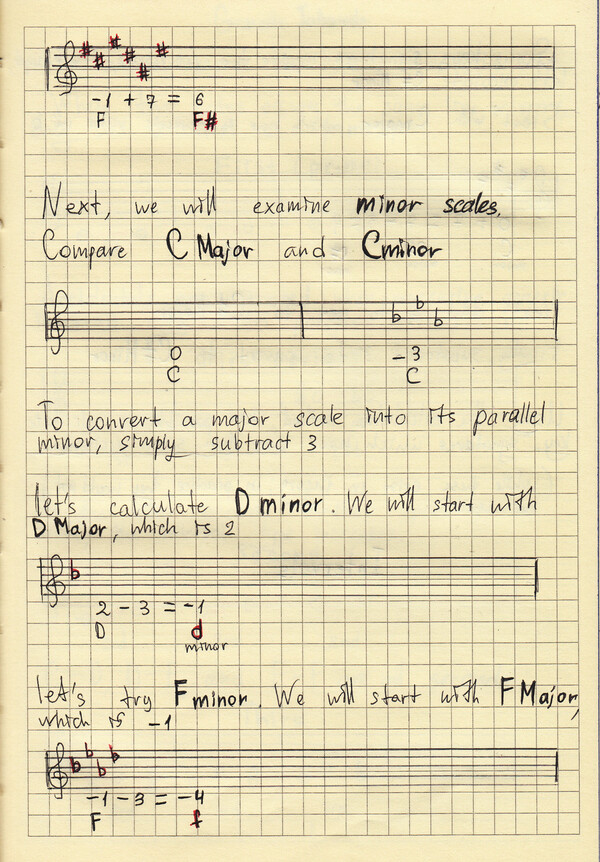 -1 + 7 = 6
F F#
Next, we will examine minor scales.
Compare C Major and C minor
0 -3
C C
To convert a major scale into its parallel
minor, simply subtract 3
let's calculate D minor. We will start with
D Major, which is 2
2 - 3 = -1
D d
minor
let's try F minor. We will start with F Major,
which is -1
-1 - 3 = -4
F f